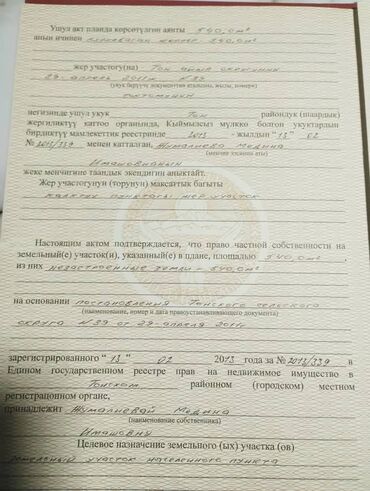 Ушул акт планда көрсөтүлгөн аянты 540,0м²
анын ичинен 540,0м²
жер участогу(на) Тон айыл округунун
29-апрель 2011ж. №39
(укук берүүчү документтин аталышы, жылы, номери)
токтомунун
негизинде ушул укук Тон райондук (шаардык)
жергиликтүү каттоо органында, Кыймылсыз мүлккө болгон укуктардын
бирдиктүү мамлекеттик реестринде 2013 - жылдын "13" 02
№ 2013/339 менен катталган, Жумалиева Медина
(менчик ээсинин аты)
Имашовнанын
жеке менчигине таандык экендигин аныктайт.
Жер участогунун (торунун) максаттык багыты
калктуу пунктагы жер участок
Настоящим актом подтверждается, что право частной собственности на
земельный(е) участок(и), указанный(е) в плане, площадью 540,0м²,
из них незастроенные земли - 540,0м²
на основании постановления Тонского сельского
(наименование, номер и дата правоустанавливающего документа)
округа №39 от 29-апреля 2011г
зарегистрированного "13" 02 2013 года за № 2013/339 в
Едином государственном реестре прав на недвижимое имущество в
Тонском районном (городском) местном
регистрационном органе,
принадлежит Жумалиевой Медина
(наименование собственника)
Имашовны
Целевое назначение земельного (ых) участка (ов)
земельный участок населенного пункта